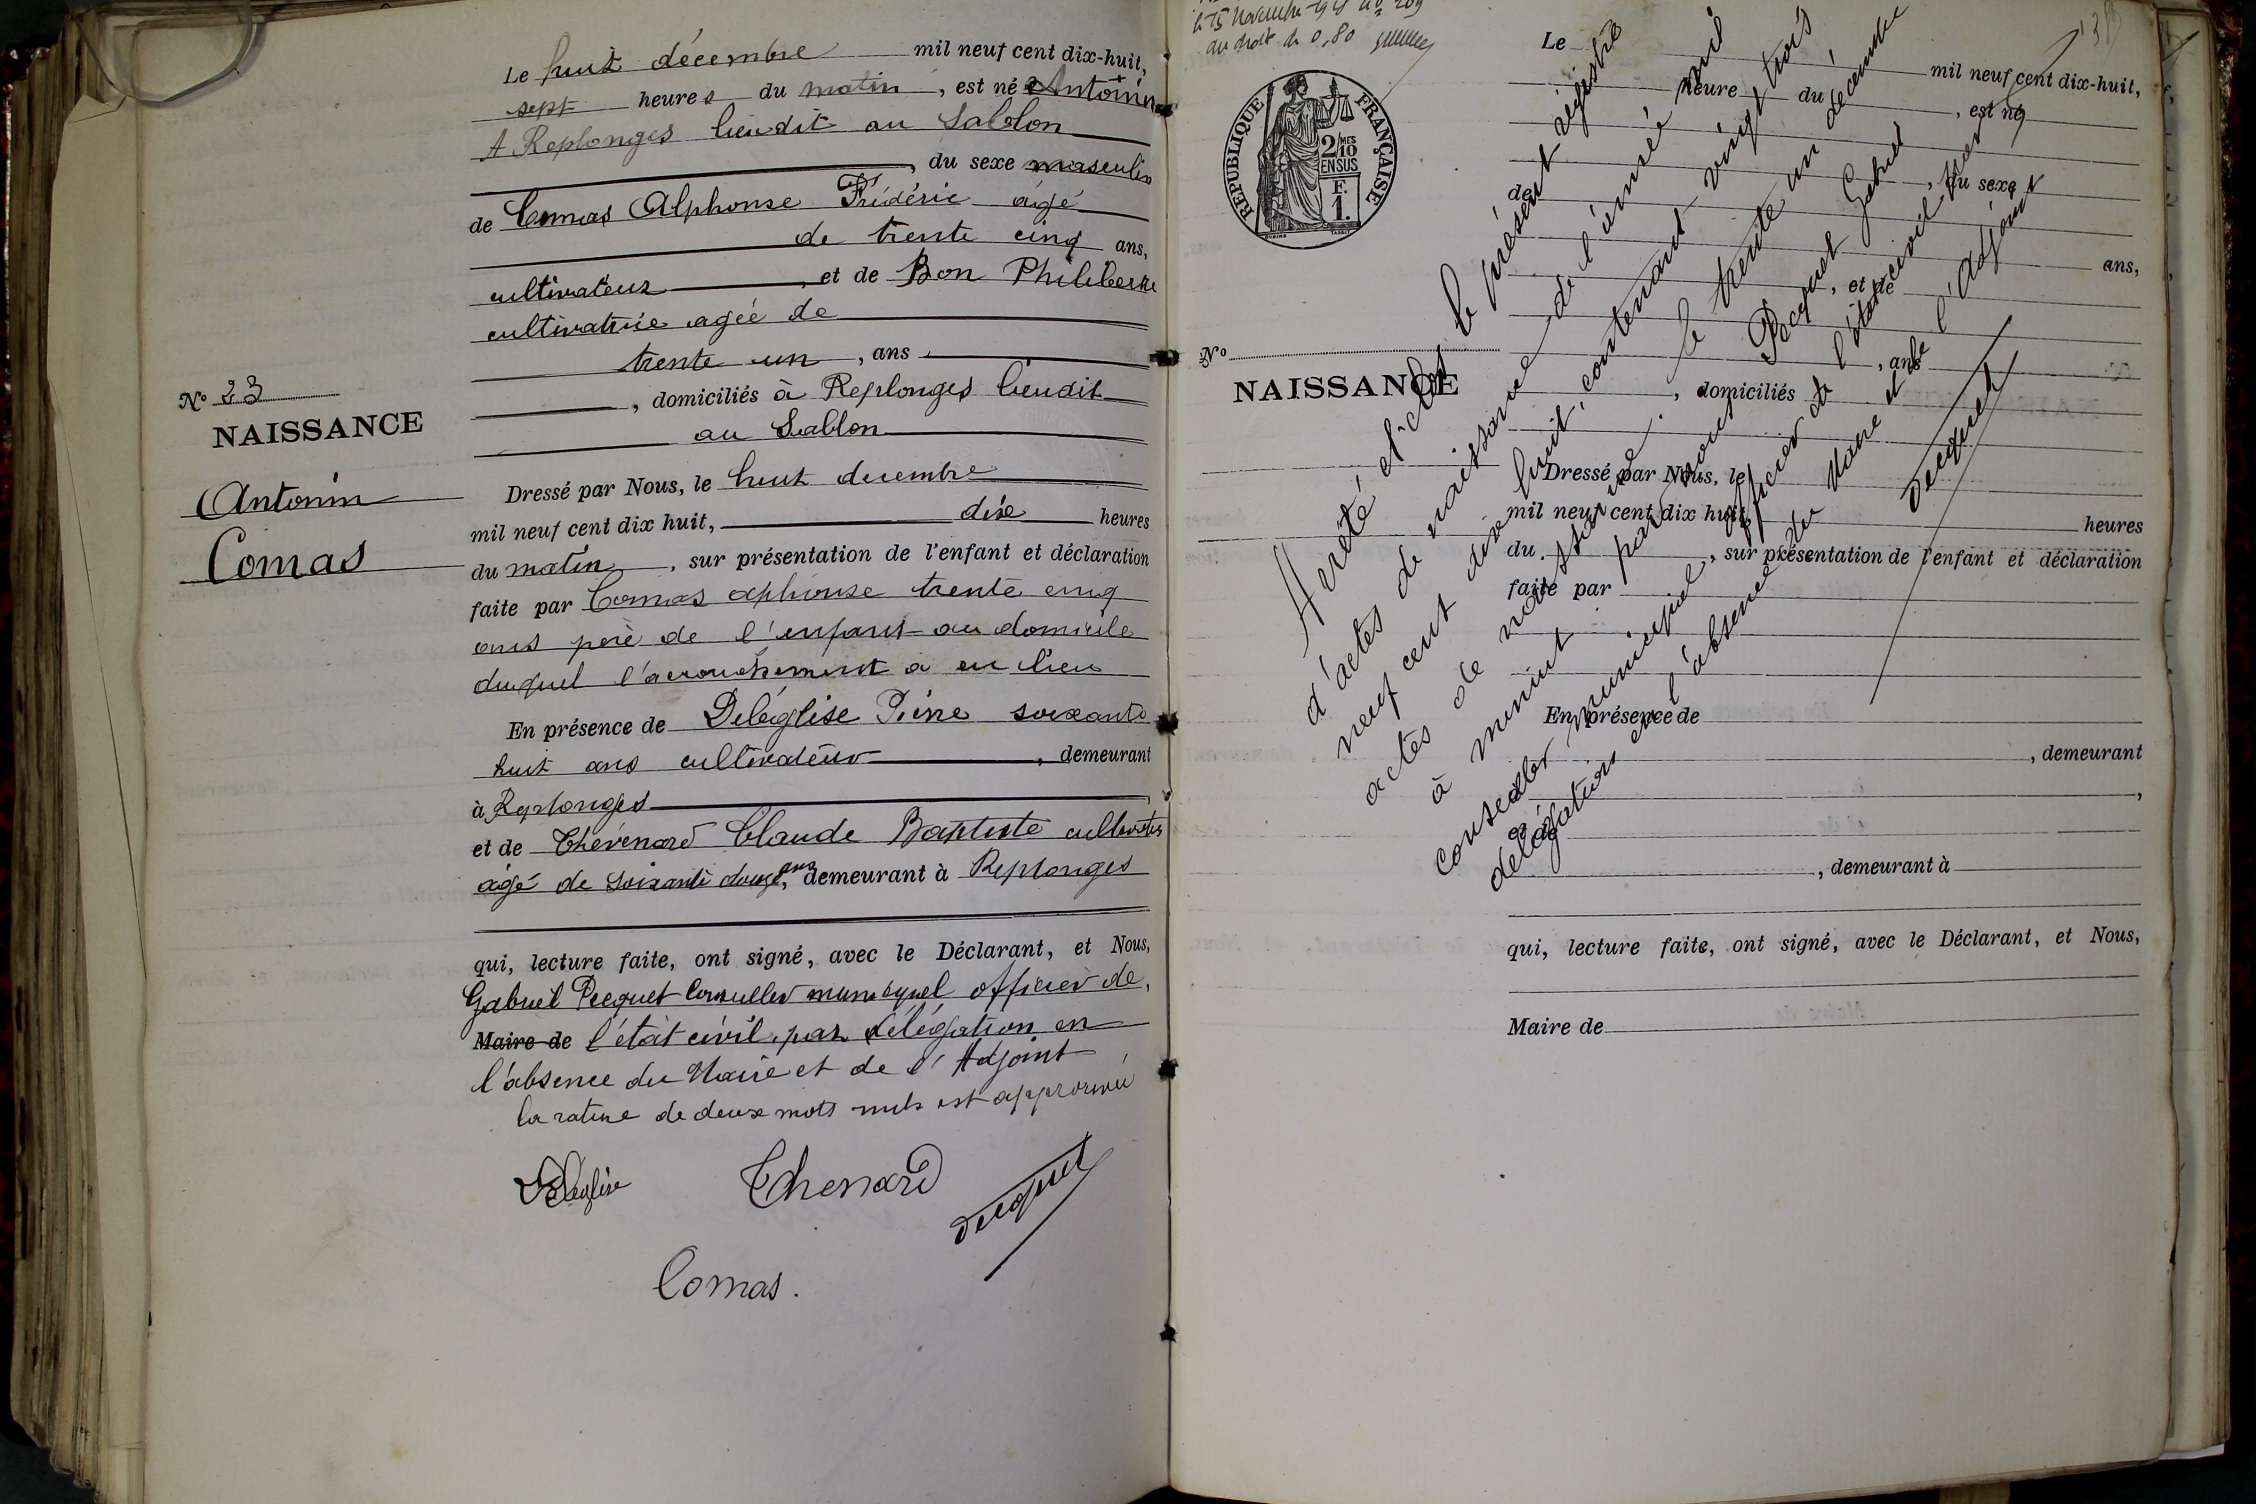 Le huit décembre mil neuf cent dix-huit,
sept heures du matin, est né Antonin
A Replonges lieudit au Sablon
, du sexe masculin
de Comas Alphonse Frédéric âgé
de trente cinq ans,
cultivateur, et de Bon Philiberte
cultivatrice agée de
trente un, ans
, domiciliés à Replonges lieudit
au Sablon
No 23
NAISSANCE
Antonin
Comas
Dressé par Nous, le huit decembre
mil neuf cent dix huit, dix heures
du matin, sur présentation de l'enfant et déclaration
faite par Comas alphonse trente cinq
ans père de l'enfant au domicile
duquel l'accouchement a eu lieu
En présence de Deléglise Pierre soixante
huit ans cultivateur, demeurant
à Replonges
et de Thévenard Claude Baptiste cultivateur
âgé de soixante douze ans, demeurant à Replonges
qui, lecture faite, ont signé, avec le Déclarant, et Nous,
Gabriel Pecquet Conseiller municipal officier de
Maire de l'état civil par délégation en
l'absence du Maire et de l'Adjoint
la rature de deux mots nuls est approuvée
Deléglise
Thenard
Pecquet
Comas.
le 15 Novembre
au droit de 0,80
RÉPUBLIQUE FRANÇAISE
2/10 MES
EN SUS
F.
1.
No
NAISSANCE
Le mil neuf cent dix-huit,
heure du, est né
, du sexe
de
ans,
, et de
, ans
, domiciliés
Dressé par Nous, le
mil neuf cent dix huit, heures
du, sur présentation de l'enfant et déclaration
faite par
En présence de
, demeurant
et de
, demeurant à
qui, lecture faite, ont signé, avec le Déclarant, et Nous,
Maire de
Arrêté et clos le présent registre
d'actes de naissance de l'année mil
neuf cent dix huit, contenant vingt trois
actes de naissance. le trente un décembre
à minuit par nous Pecquet Gabriel
conseiller municipal officier de l'état civil par
délégation en l'absence du Maire et de l'Adjoint
Pecquet